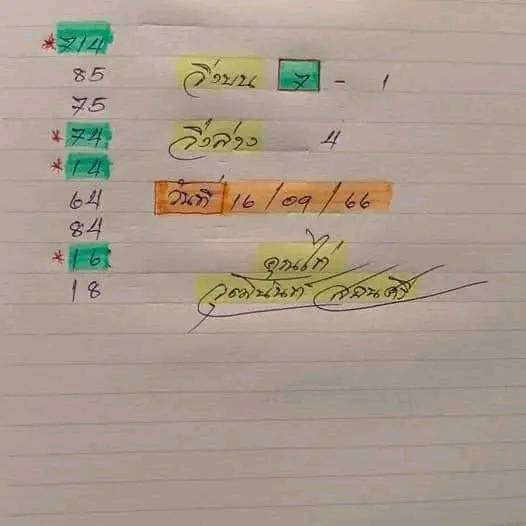 *714
85 วิ่งบน 7 - 1
75
*74 วิ่งล่าง 4
*14
64 วันที่ 16/09/66
84
*16 คุณไก่
18